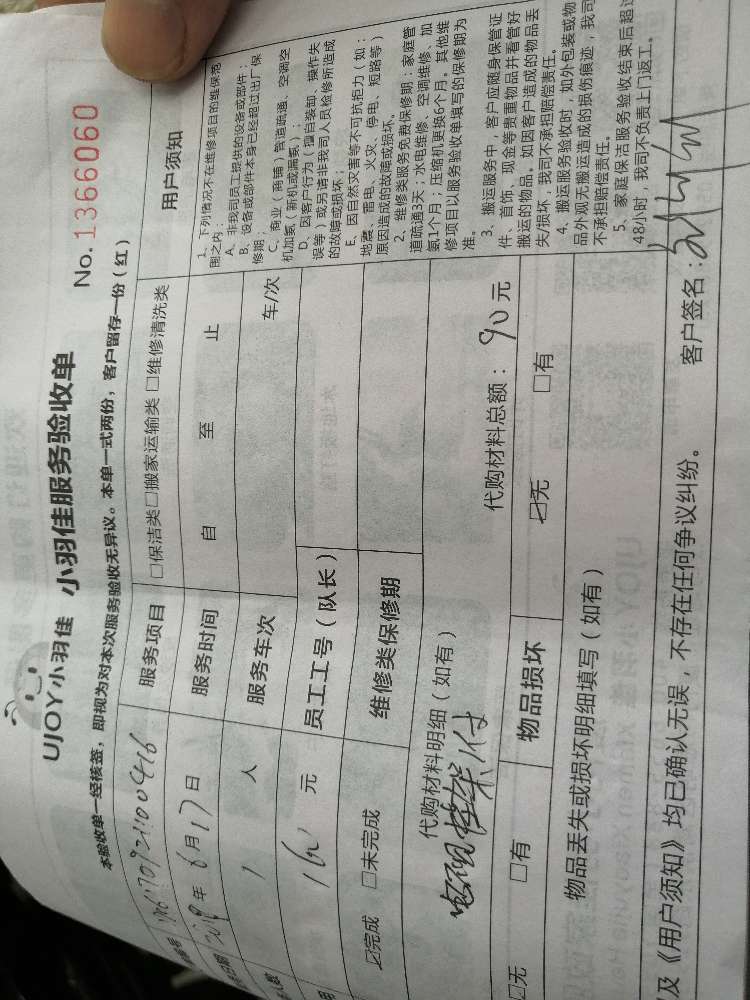 UJOY小羽佳 小羽佳服务验收单
No. 1366060
本验收单一经核签，即视为对本次服务验收无异议。本单一式两份，客户留存一份（红）
服务项目 □保洁类□搬家运输类 □维修清洗类
2019年6月17日 服务时间 自 至 止
1 人 服务车次 车/次
元 员工工号（队长）
☑完成 □未完成 维修类保修期
代购材料明细（如有） 代购材料总额：90元
□无 □有 物品损坏 ☑无 □有
物品丢失或损坏明细填写（如有）
及《用户须知》均已确认无误，不存在任何争议纠纷。 客户签名：
用户须知
1、下列情况不在维修项目的维保范
围之内：
A、非我司员工提供的设备或部件；
B、设备或部件本身已经超过出厂保
修期；
C、商业（商铺）管道疏通、空调空
机加氨（新机或漏氨）；
D、因客户行为（擅自装卸、操作失
误等）或另请非我司人员检修所造成
的故障或损坏；
E、因自然灾害等不可抗拒力（如：
地震、雷电、火灾、停电、短路等）
原因造成的故障或损坏。
2、维修类服务免费保修期：家庭管
道疏通3天；水电维修、空调维修、加
氨1个月；压缩机更换6个月。其他维
修项目以服务验收单填写的保修期为
准。
3、搬运服务中，客户应随身保管证
件、首饰、现金等贵重物品并看管好
搬运的物品。如因客户造成的物品丢
失/损坏，我司不承担赔偿责任。
4、搬运服务验收时，如外包装或物
品外观无搬运造成的损伤痕迹，我司
不承担赔偿责任。
5、家庭保洁服务验收结束后超过
48小时，我司不负责上门返工。